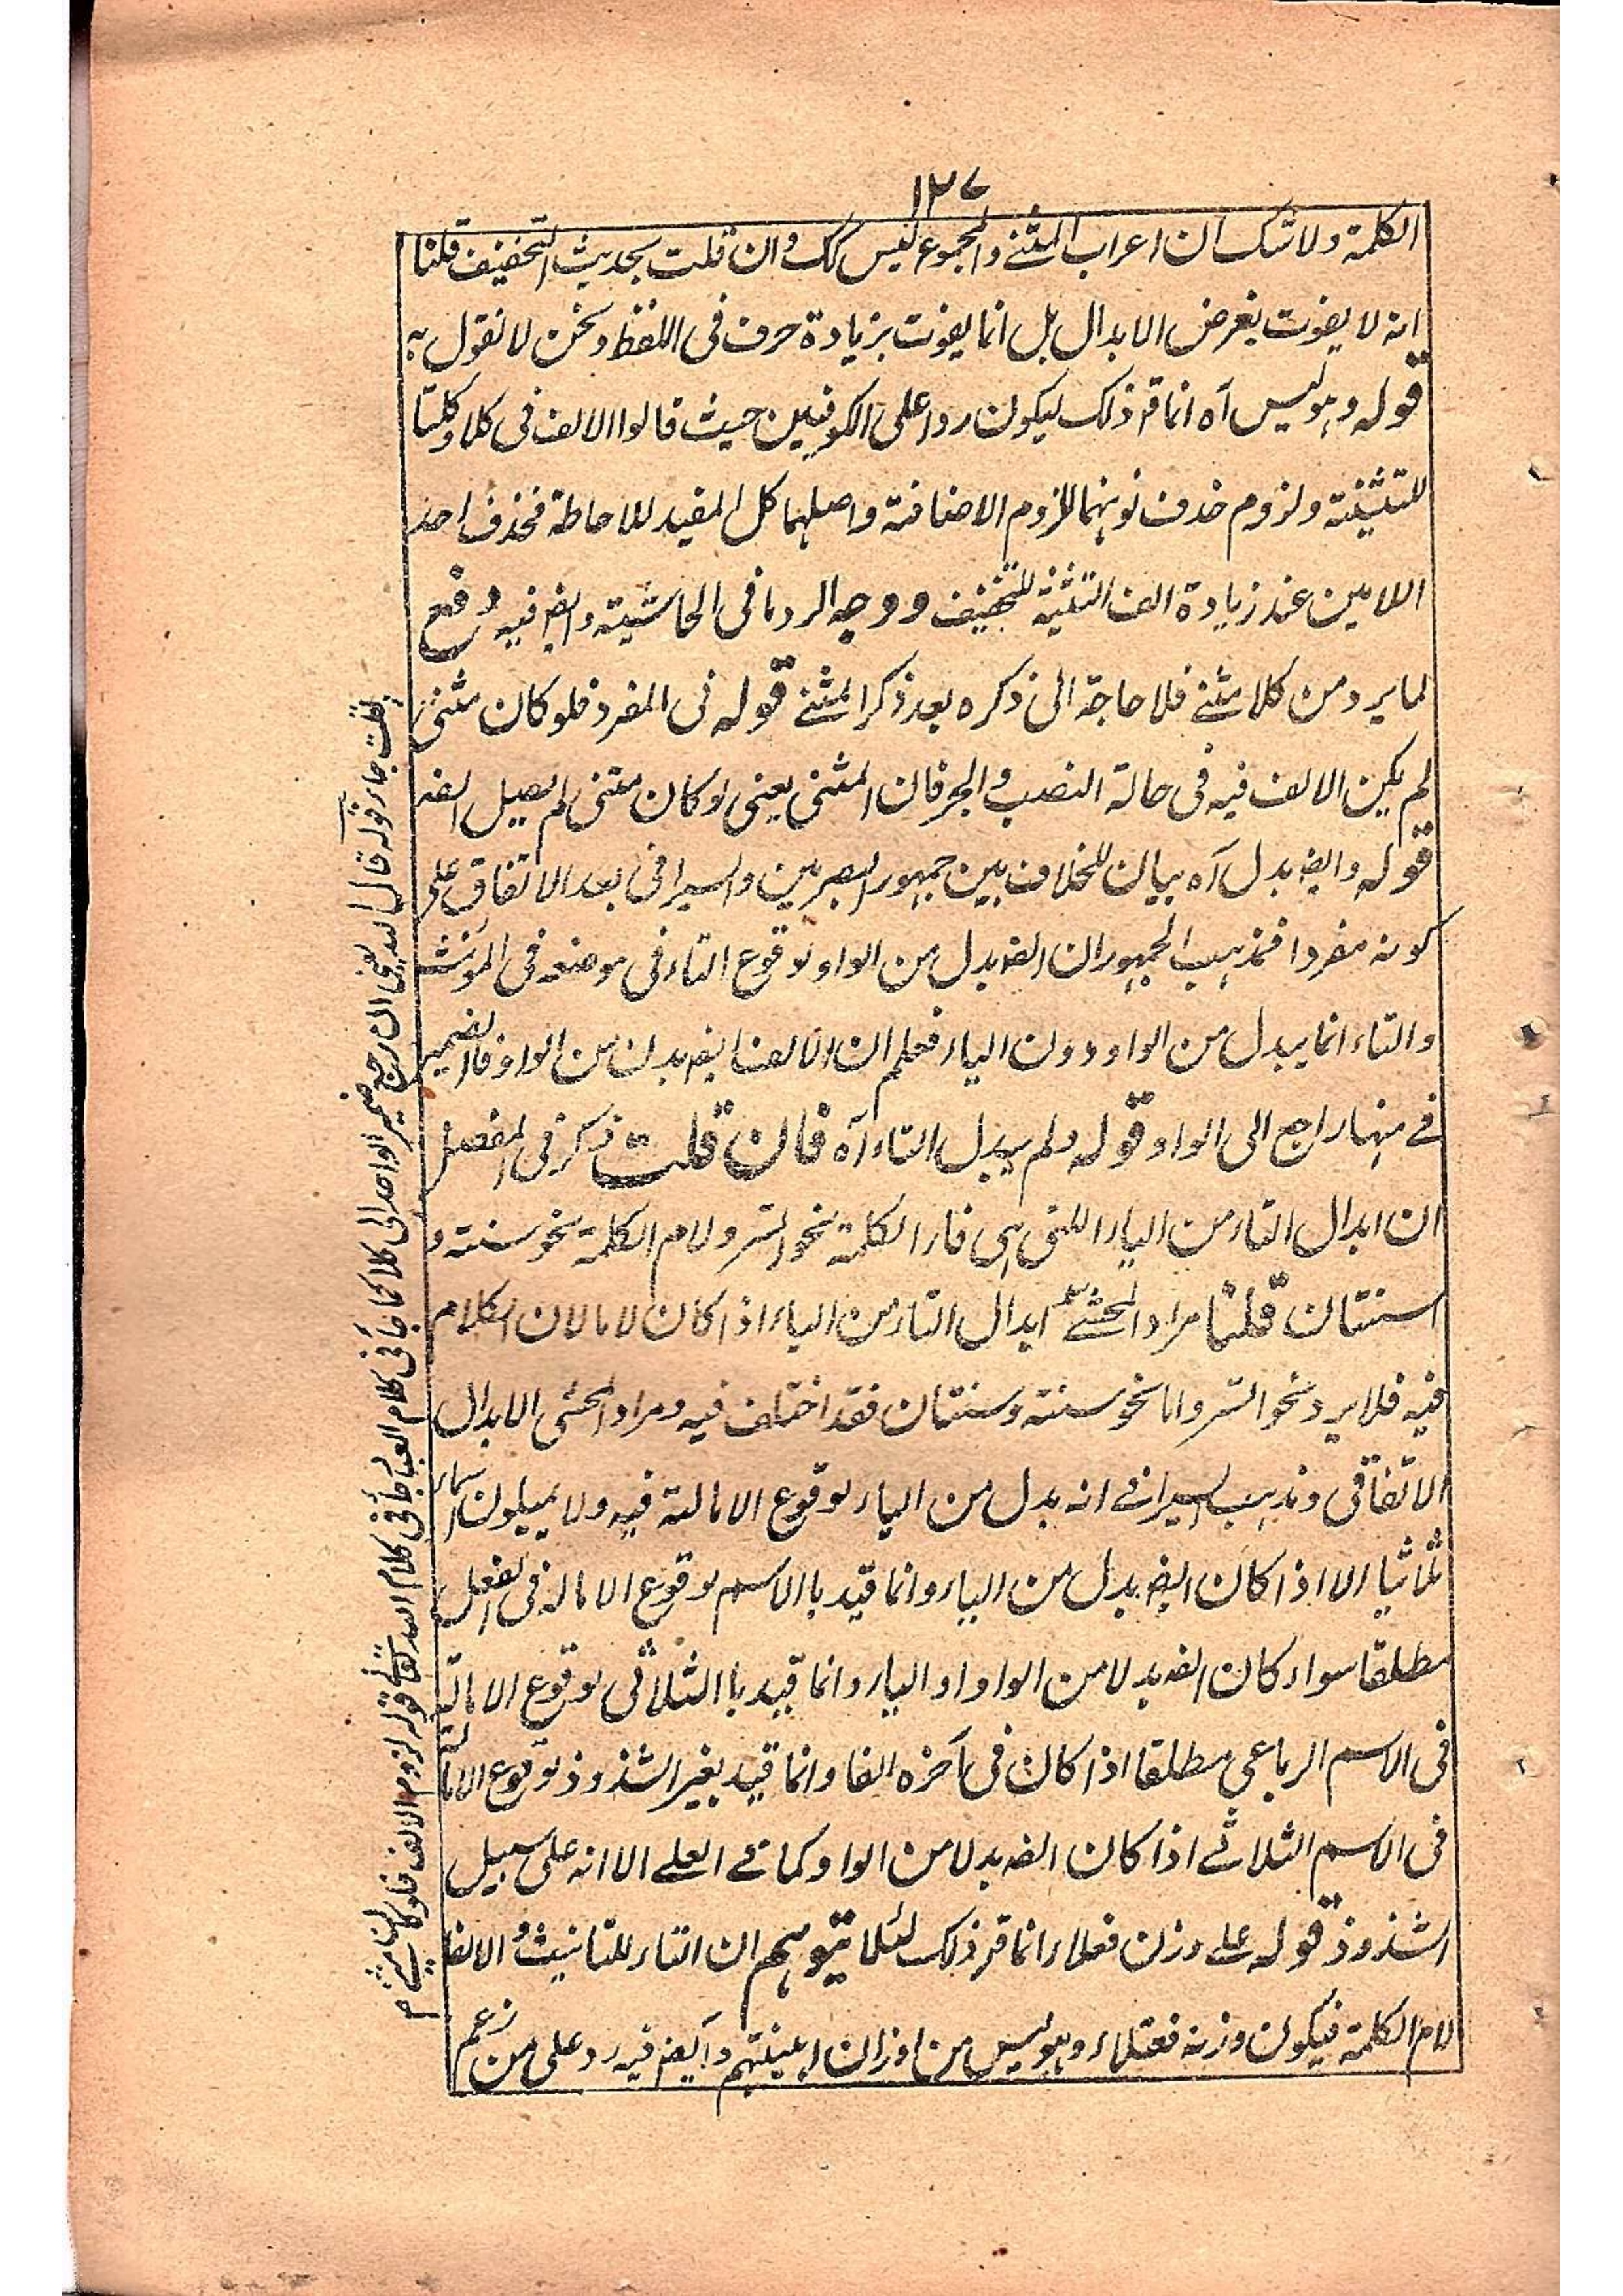 ١٢٧
الكلمة ولا شك ان اعراب المثنے والمجموع ليس كك وان قلت بحديث التخفيف قلنا
انه لا يفوت بغرض الابدال بل انما يفوت بزيادة حرف فى اللفظ ونحن لا نقول به
قوله وہوليس آه انما قر ذلك ليكون ردا على الكوفيين حيث قالوا الالف فى كلا وكلتا
للتثنية ولزوم حذف نونہما للزوم الاضافة واصلہما كل المفيد للاحاطة فحذف احد
اللامين عند زيادة الف التثنية للتخفيف ووجه الرد ما فى الحاشية وايض فيه دفع
لما يرد من كلا مثنے فلا حاجة الى ذكره بعد ذكر المثنے قوله فى المفرد فلو كان مثنى
لم يكن الالف فيه فى حالة النصب والجر فان المثنى يعنى لو كان مثنى لم يصل الفه
قوله وايض بدل آه بيان للخلاف بين جمہور البصريين والسيرافى بعد الاتفاق على
كونه مفردا فمذہب الجمہور ان الفه بدل من الواو لوقوع التاء فى موضعه فى المؤنث
والتاء انما يبدل من الواو دون الياء فعلم ان الالف ايض بدل من الواو فالضمير
فے منہا راجع الى الواو قوله ولم يبدل التاء آه فان قلت ذكر فى المفصل
ان ابدال التاء من الياء اللتى ہى فاء الكلمة نحو اتسر ولام الكلمة نحو سنته و
اسنتان قلنا مراد المحشے ابدال التاء من الياء اذا كان لاما لان الكلام
فيه فلا يرد نحو اتسر واما نحو سنته وسنتان فقد اختلف فيه ومراد المحشى الابدال
الاتفاقى ومذہب السيرافے انه بدل من الياء لوقوع الامالة فيه ولا يميلون اسماء
ثلاثيا الا اذا كان الفه بدل من الياء وانما قيد باالاسم لوقوع الاماله فى الفعل
مطلقا سواء كان الفه بدلا من الواو او الياء وانما قيد باالثلاثى لوقوع الامالة
فى الاسم الرباعى مطلقا اذا كان فى آخره الفا وانما قيد بغير الشذوذ لوقوع الامالة
فى الاسم الثلاثے اذا كان الفه بدلا من الواو كما فے العلے الا انه على سبيل
الشذوذ قوله علے وزن فعلاء انما قر ذلك لئلا يتوہم ان التاء للتانيث والالف
لام الكلمة فيكون وزنه فعتلاء وہوليس من اوزان ابنيتہم وايض فيه رد على من زعم
قلت جاء قوله قال السيد يعنى ان ارجع ضمير الواحد الى كلا كما جاء فى كلام العباد جاء فى كلام الله تعالے قوله لزوم الالف فلو كانت